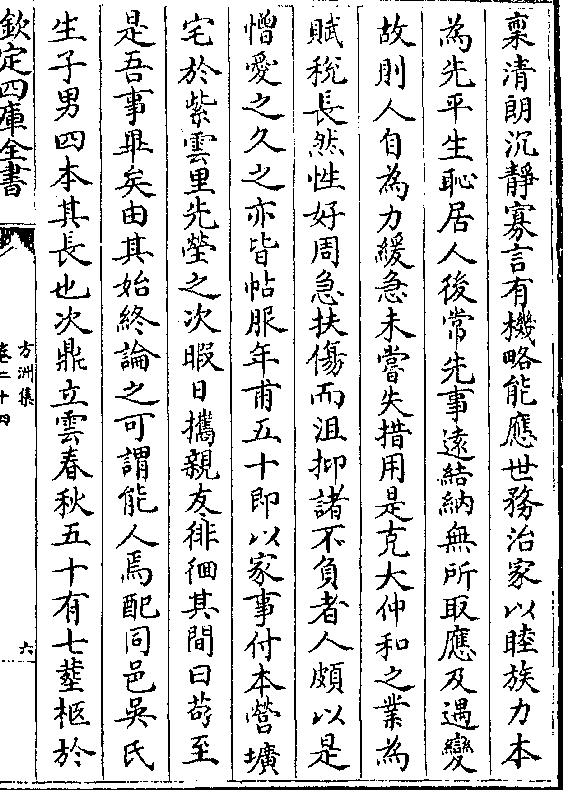 稟清朗沉靜寡言有機略能應世務治家以睦族力本
為先平生恥居人後常先事遠結納無所取應及遇變
故則人自為力緩急未嘗失措用是克大仲和之業為
賦稅長然性好周急扶傷而沮抑諸不負者人頗以是
憎愛之久之亦皆帖服年甫五十即以家事付本營壙
宅於紫雲里先塋之次暇日攜親友徘徊其間曰苟至
是吾事畢矣由其始終論之可謂能人焉配同邑吳氏
生子男四本其長也次鼎立雲春秋五十有七塟柩於
欽定四庫全書
方洲集
卷二十四
六